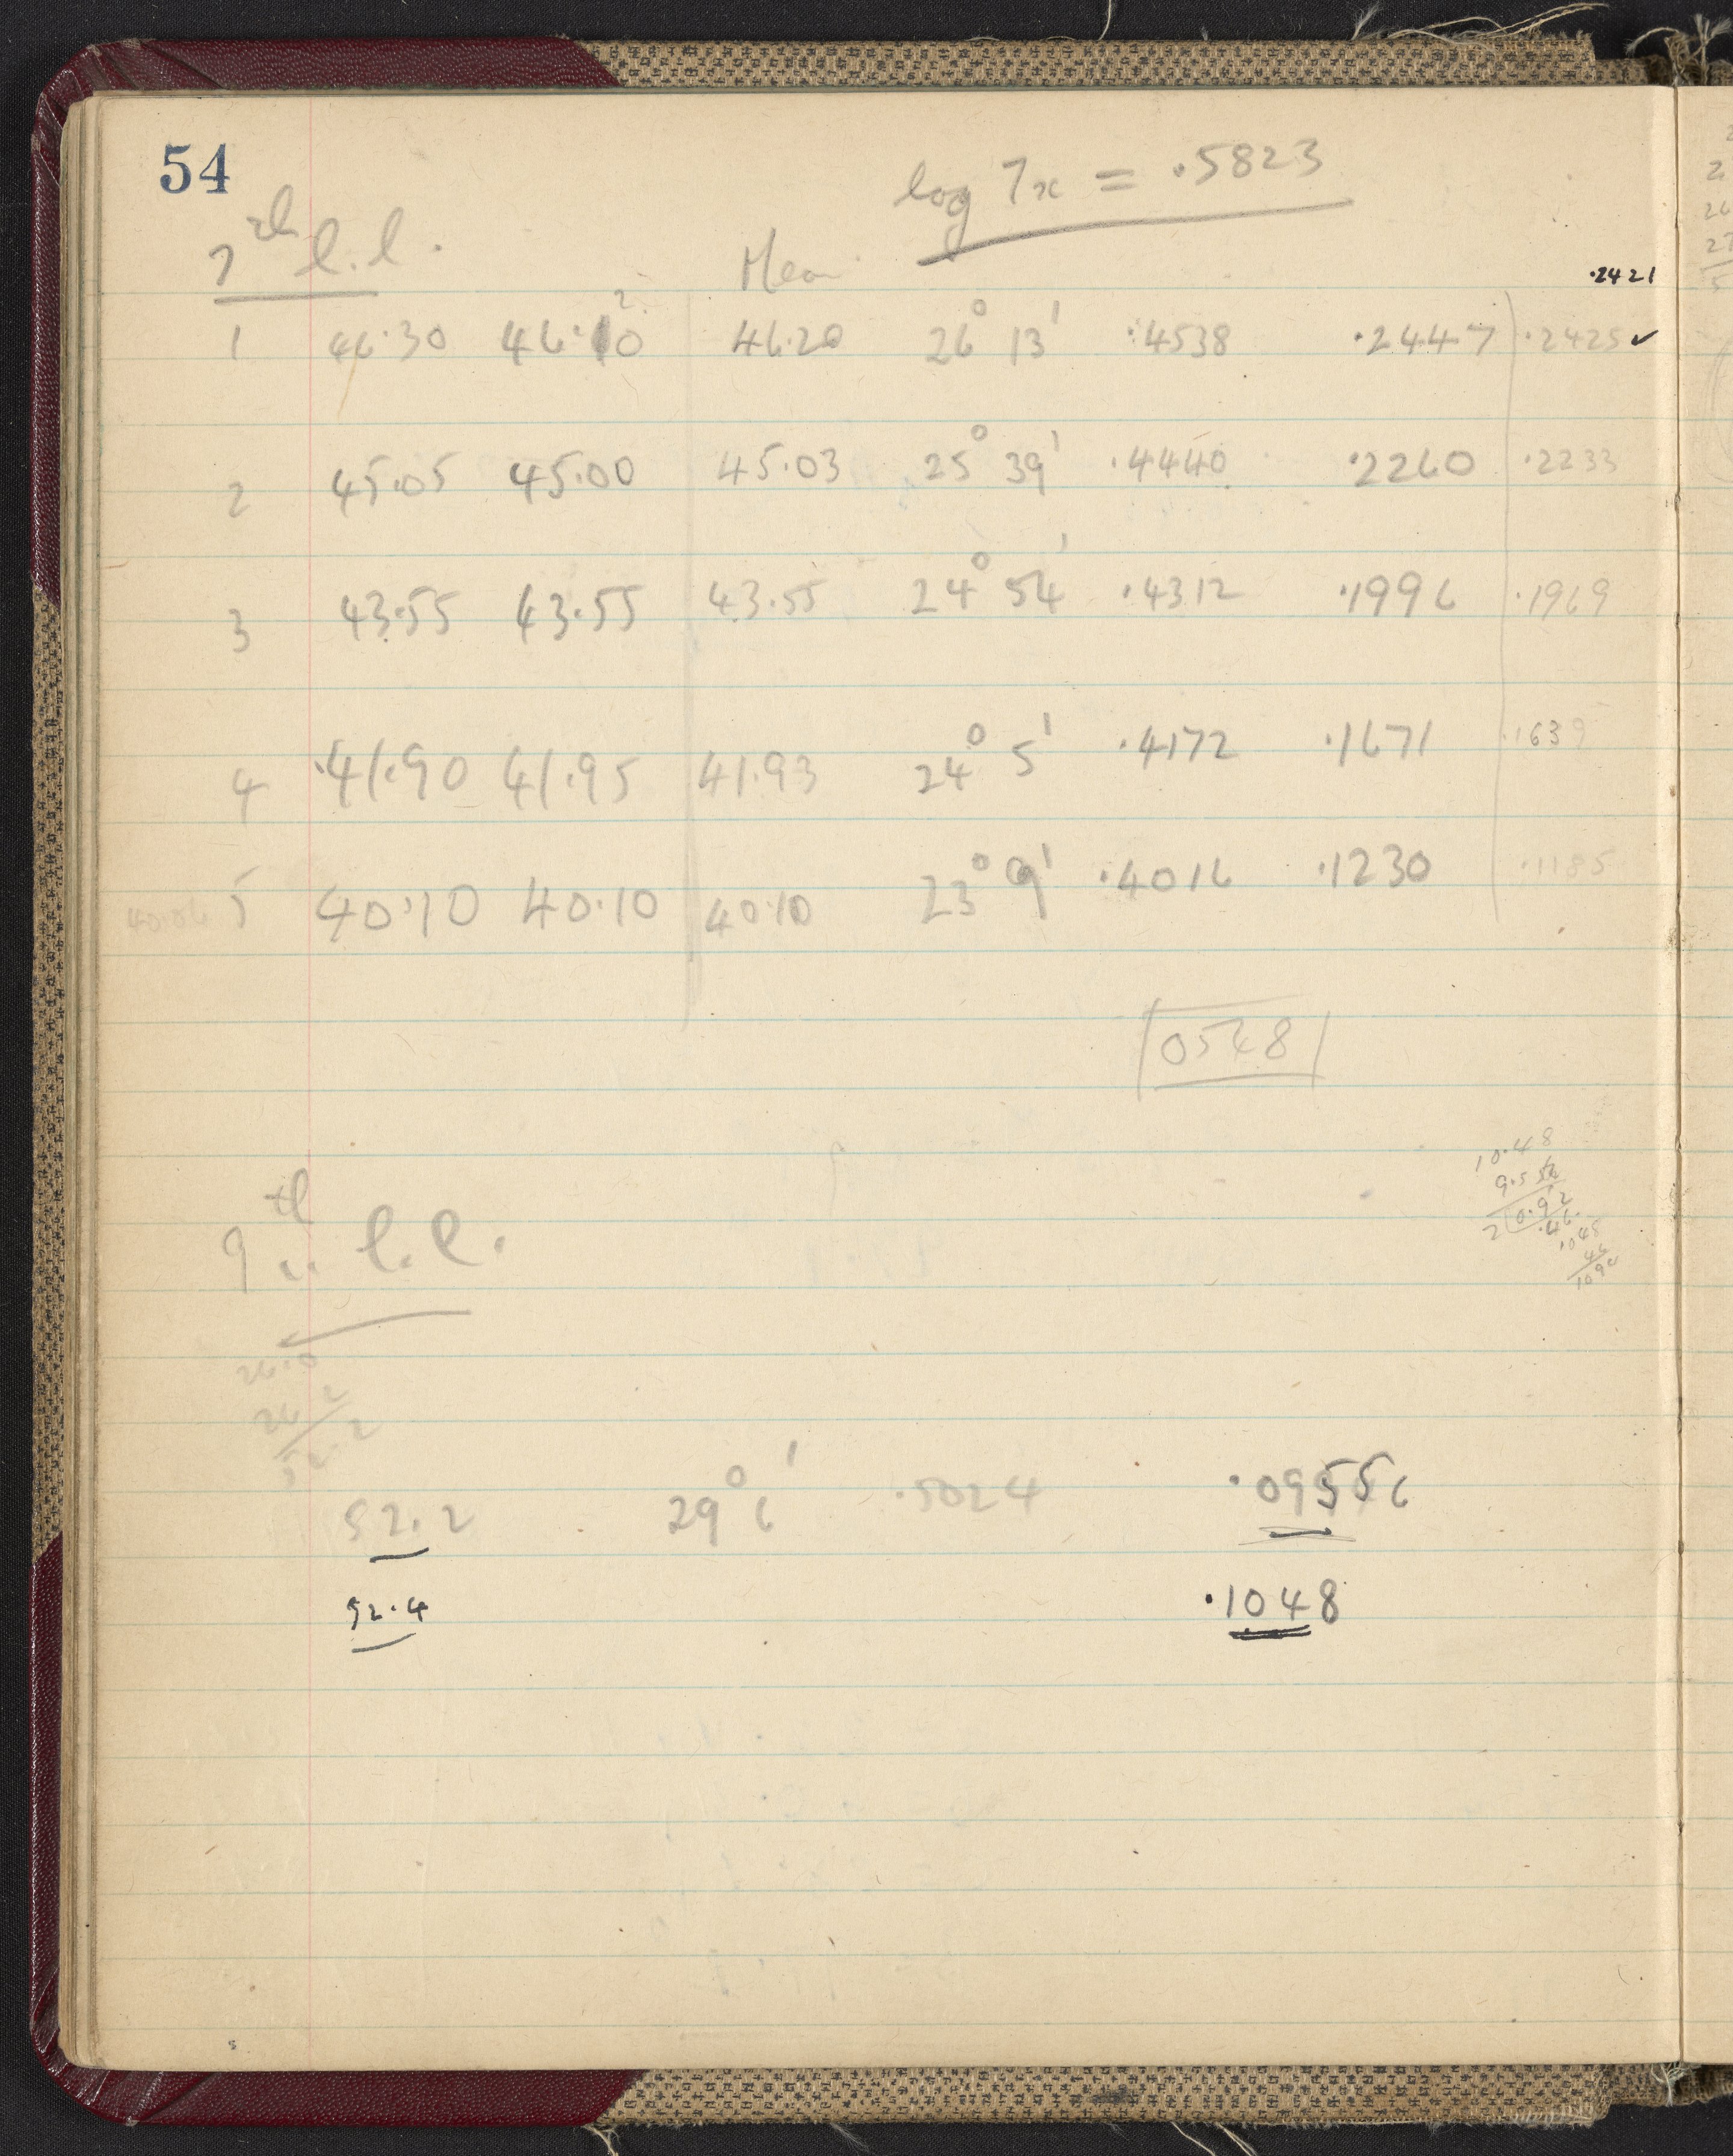 54
log 7x = .5823
7th l.l.
Mean
.2421
1 46.30 46.20 46.20 26° 13' .4538 .2447 .2425 ✓
2 45.05 45.00 45.03 25° 39' .4440 .2260 .2233
3 43.55 43.55 43.55 24° 54' .4312 .1996 .1969
4 41.90 41.95 41.93 24° 5' .4172 .1671 .1639
40.06 5 40.10 40.10 40.10 23° 9' .4016 .1230 .1185
0548
10.48
9.556
2 0.92
.46
.1048
46
109
9th l.l.
26.0
26.2
52.2
52.2 29° 6' .5024 .09556
52.4 .1048